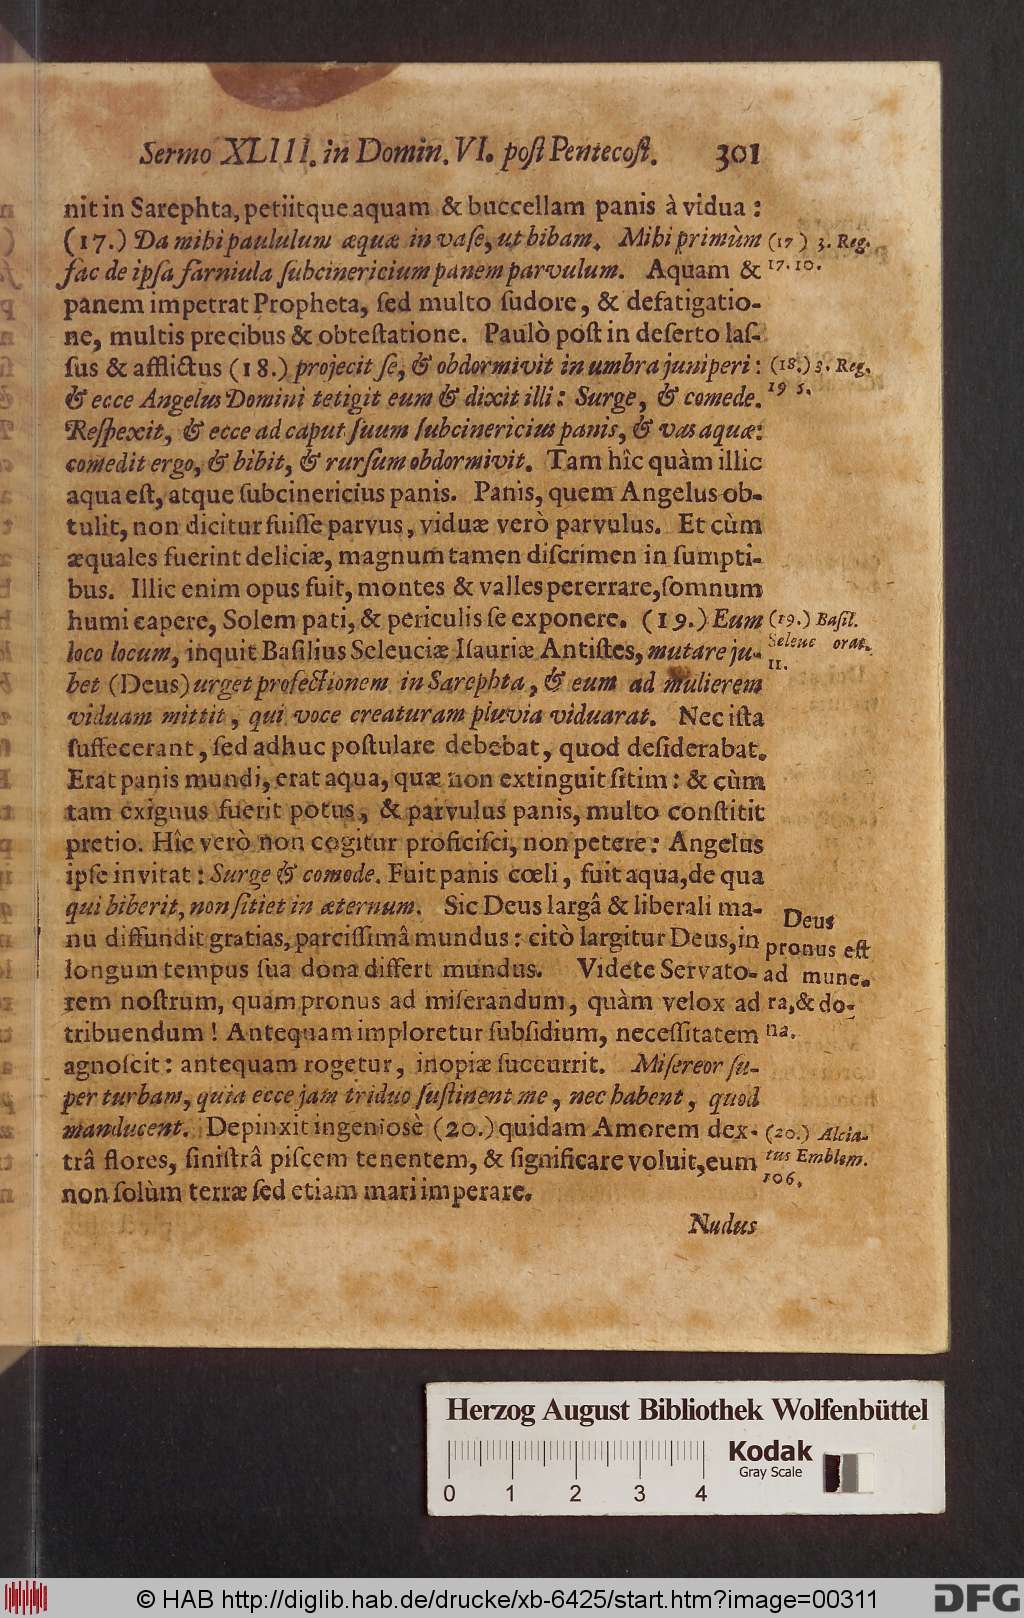 Sermo XLIII. in Domin. VI. poſt Pentecoſt. 301
nit in Sarephta, petiitque aquam & buccellam panis à vidua:
(17.) Da mihi paululum æquæ in vaſe, ut bibam. Mihi primùm
fac de ipſa farniula ſubcinericium panem parvulum. Aquam &
panem impetrat Propheta, ſed multo ſudore, & defatigatio-
ne, multis precibus & obteſtatione. Paulò poſt in deſerto laſ-
ſus & afflictus (18.) projecit ſe, & obdormivit in umbra juniperi:
& ecce Angelus Domini tetigit eum & dixit illi: Surge, & comede.
Reſpexit, & ecce ad caput ſuum ſubcinericius panis, & vas aquæ:
comedit ergo, & bibit, & rurſum obdormivit. Tam hîc quàm illic
aqua eſt, atque ſubcinericius panis. Panis, quem Angelus ob-
tulit, non dicitur fuiſſe parvus, viduæ verò parvulus. Et cùm
æquales fuerint deliciæ, magnum tamen diſcrimen in ſumpti-
bus. Illic enim opus fuit, montes & valles pererrare, ſomnum
humi capere, Solem pati, & periculis ſe exponere. (19.) Eum
loco locum, inquit Baſilius Seleuciæ Iſauriæ Antiſtes, mutare ju-
bet (Deus) urget profectionem in Sarephta, & eum ad mulierem
viduam mittit, qui voce creaturam pluvia viduarat. Nec iſta
ſuffecerant, ſed adhuc poſtulare debebat, quod deſiderabat.
Erat panis mundi, erat aqua, quæ non extinguit ſitim: & cùm
tam exiguus fuerit potus, & parvulus panis, multo conſtitit
pretio. Hîc verò non cogitur proficiſci, non petere: Angelus
ipſe invitat: Surge & comede. Fuit panis cœli, fuit aqua, de qua
qui biberit, non ſitiet in æternum. Sic Deus largâ & liberali ma-
nu diffundit gratias, parciſſimâ mundus: citò largitur Deus, in
longum tempus ſua dona differt mundus. Videte Servato-
rem noſtrum, quam pronus ad miſerandum, quàm velox ad
tribuendum! Antequam imploretur ſubſidium, neceſſitatem
agnoſcit: antequam rogetur, inopiæ ſuccurrit. Miſereor ſu-
per turbam, quia ecce jam triduo ſuſtinent me, nec habent, quod
manducent. Depinxit ingeniosè (20.) quidam Amorem dex-
trâ flores, ſiniſtrâ piſcem tenentem, & ſignificare voluit, eum
non ſolùm terræ ſed etiam mari imperare.
Nudus
(17) 3. Reg.
17. 10.
(18.) 3. Reg.
19 5.
(19.) Baſil.
Seleuc orat.
11.
Deus
pronus eſt
ad mune-
ra, & do-
na.
(20.) Alcia-
tus Emblem.
106.
Herzog August Bibliothek Wolfenbüttel
Kodak
Gray Scale
0 1 2 3 4
© HAB http://diglib.hab.de/drucke/xb-6425/start.htm?image=00311
DFG